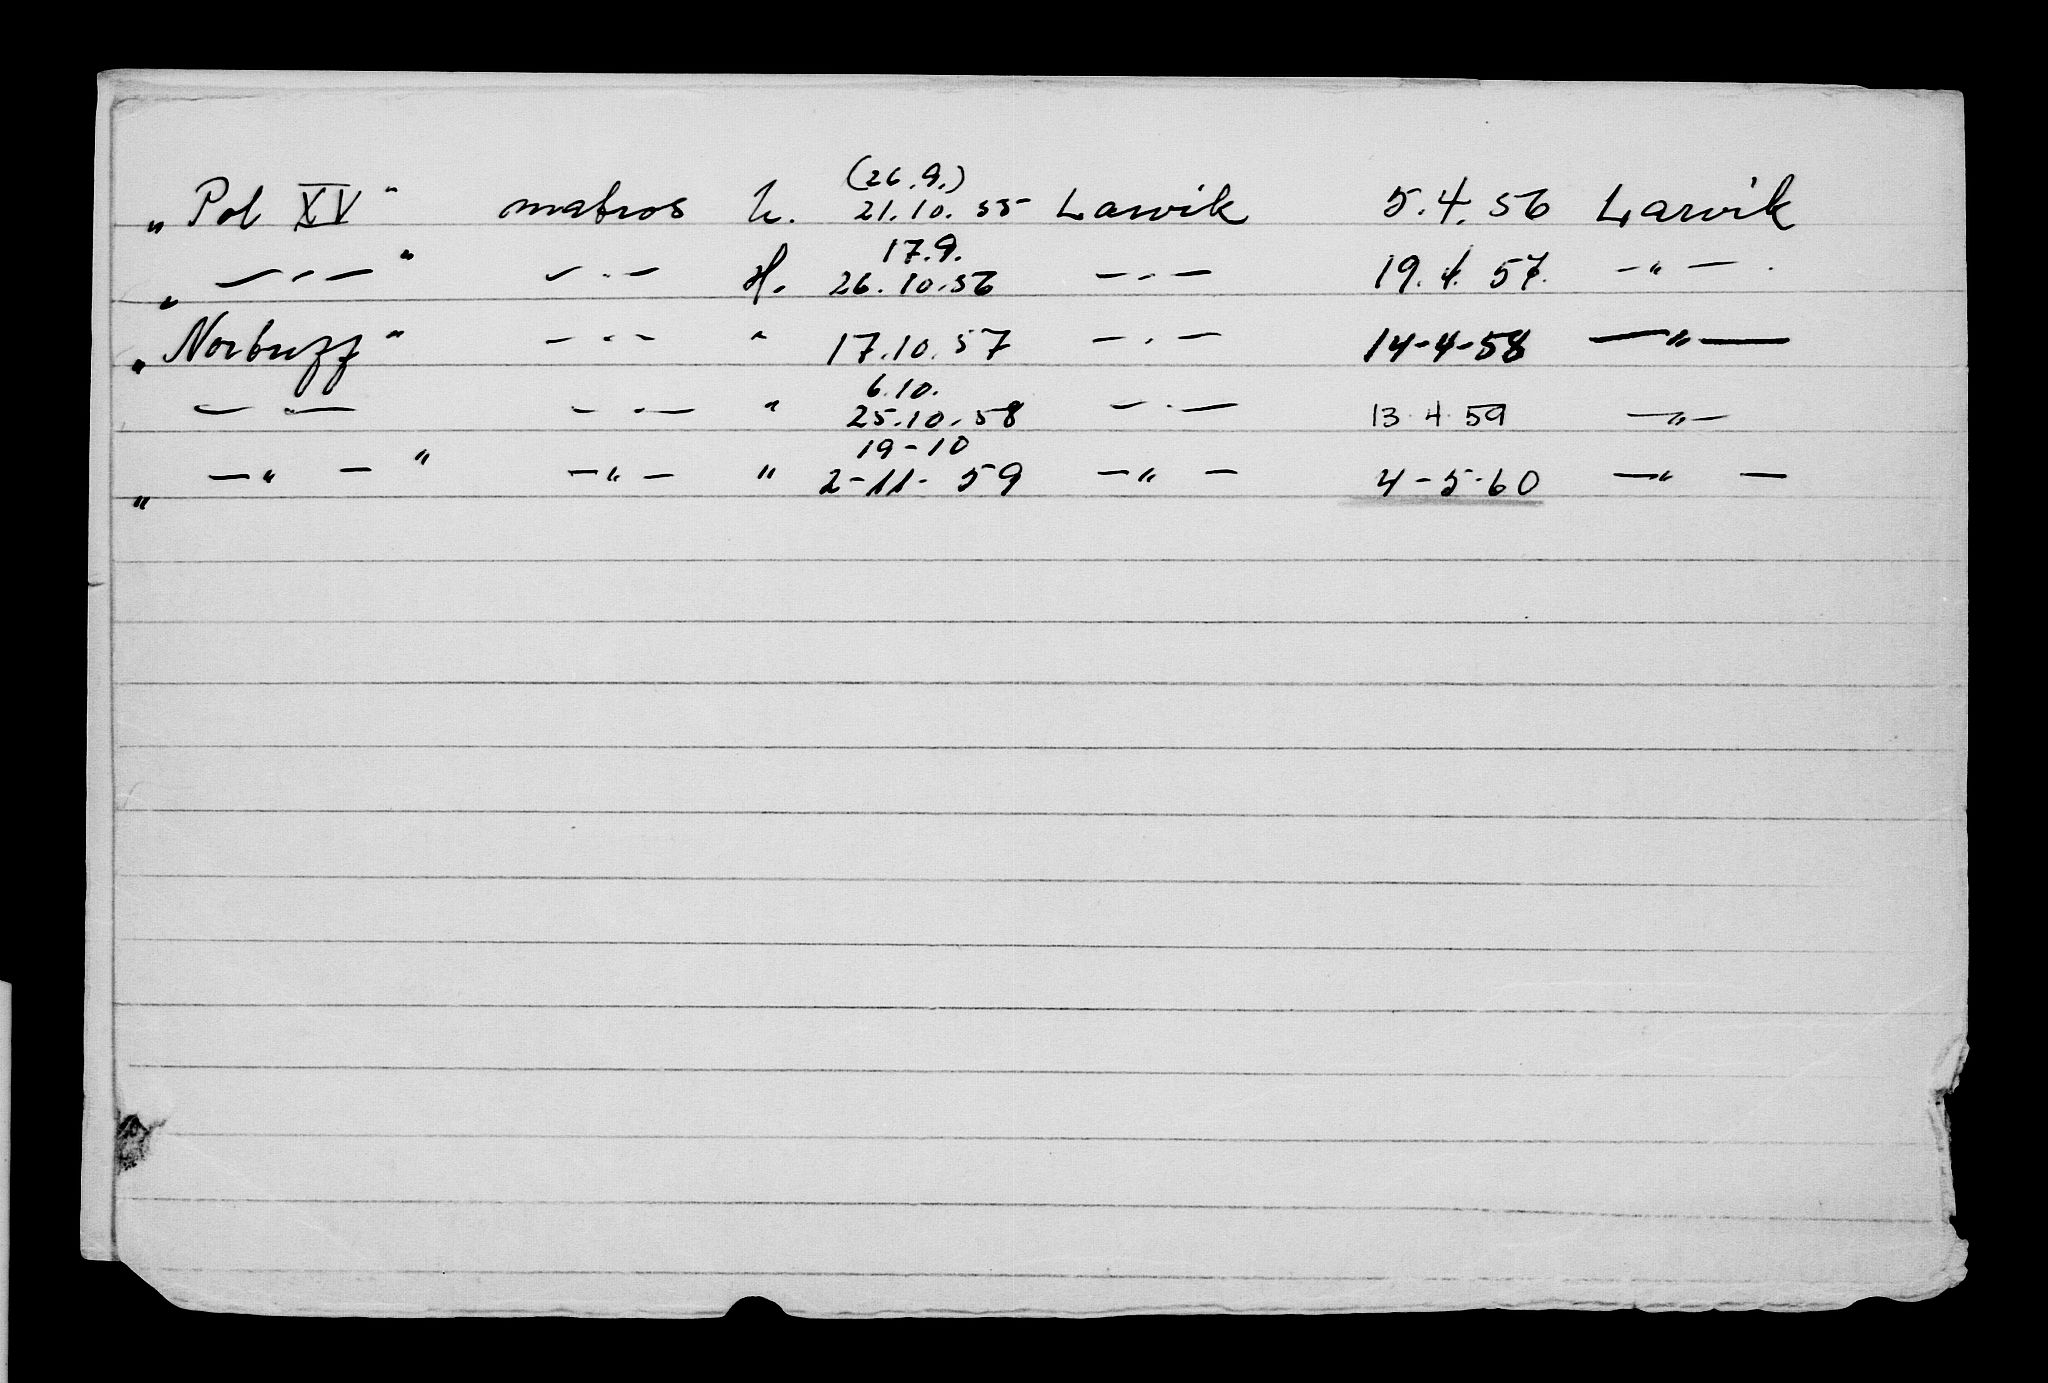 (26.9.)
„Pol XV" matros h. 21.10.55 Larvik 5.4.56 Larvik
17.9.
„—"—" —"— H. 26.10.56 —"— 19.4.57. —"—.
„Norbuzz" —"— " 17.10.57 —"— 14-4-58 —"—
6.10.
—"— —"— " 25.10.58 —"— 13.4.59 —"—
19-10
„—"—" —"— " 2-11-59 —"— 4-5-60 —"—